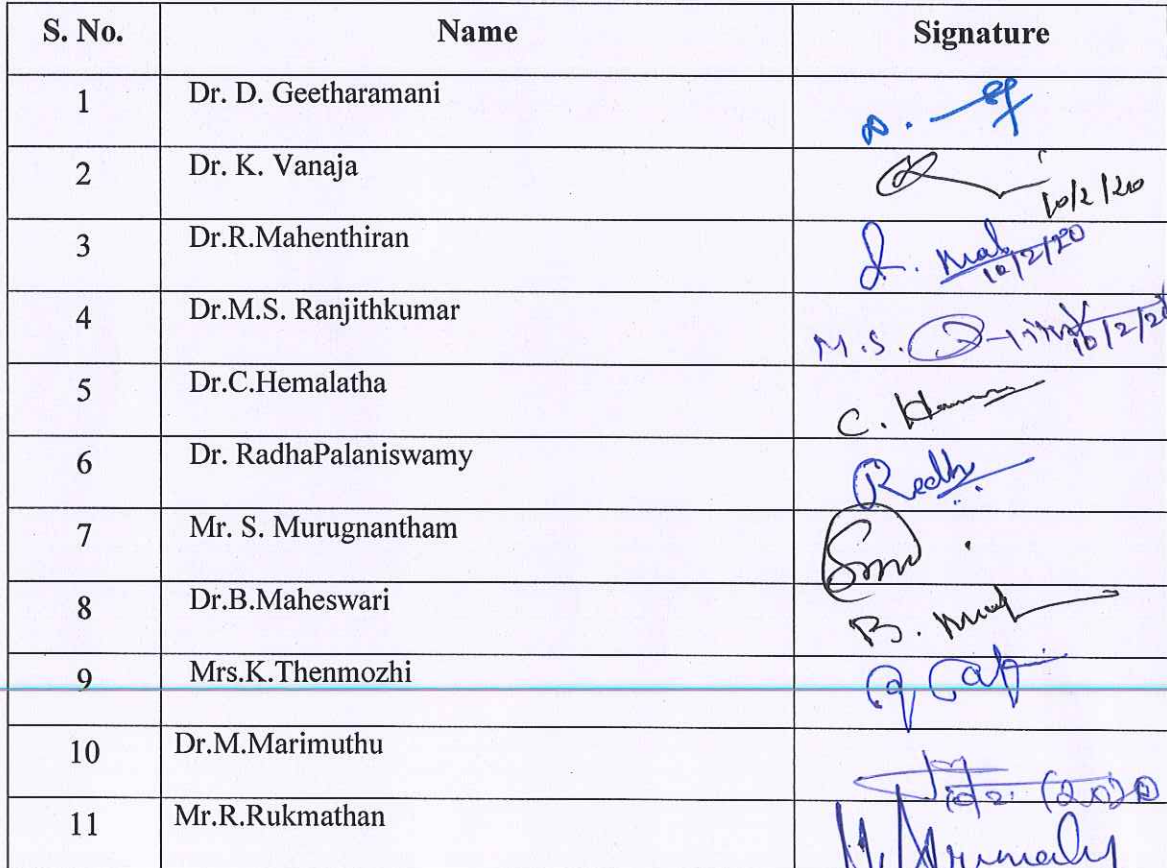 S. No. Name Signature
1 Dr. D. Geetharamani
2 Dr. K. Vanaja 10/2/20
3 Dr.R.Mahenthiran 10/2/20
4 Dr.M.S. Ranjithkumar M.S. 10/2/20
5 Dr.C.Hemalatha C.
6 Dr. RadhaPalaniswamy
7 Mr. S. Murugnantham
8 Dr.B.Maheswari B.
9 Mrs.K.Thenmozhi
10 Dr.M.Marimuthu
11 Mr.R.Rukmathan